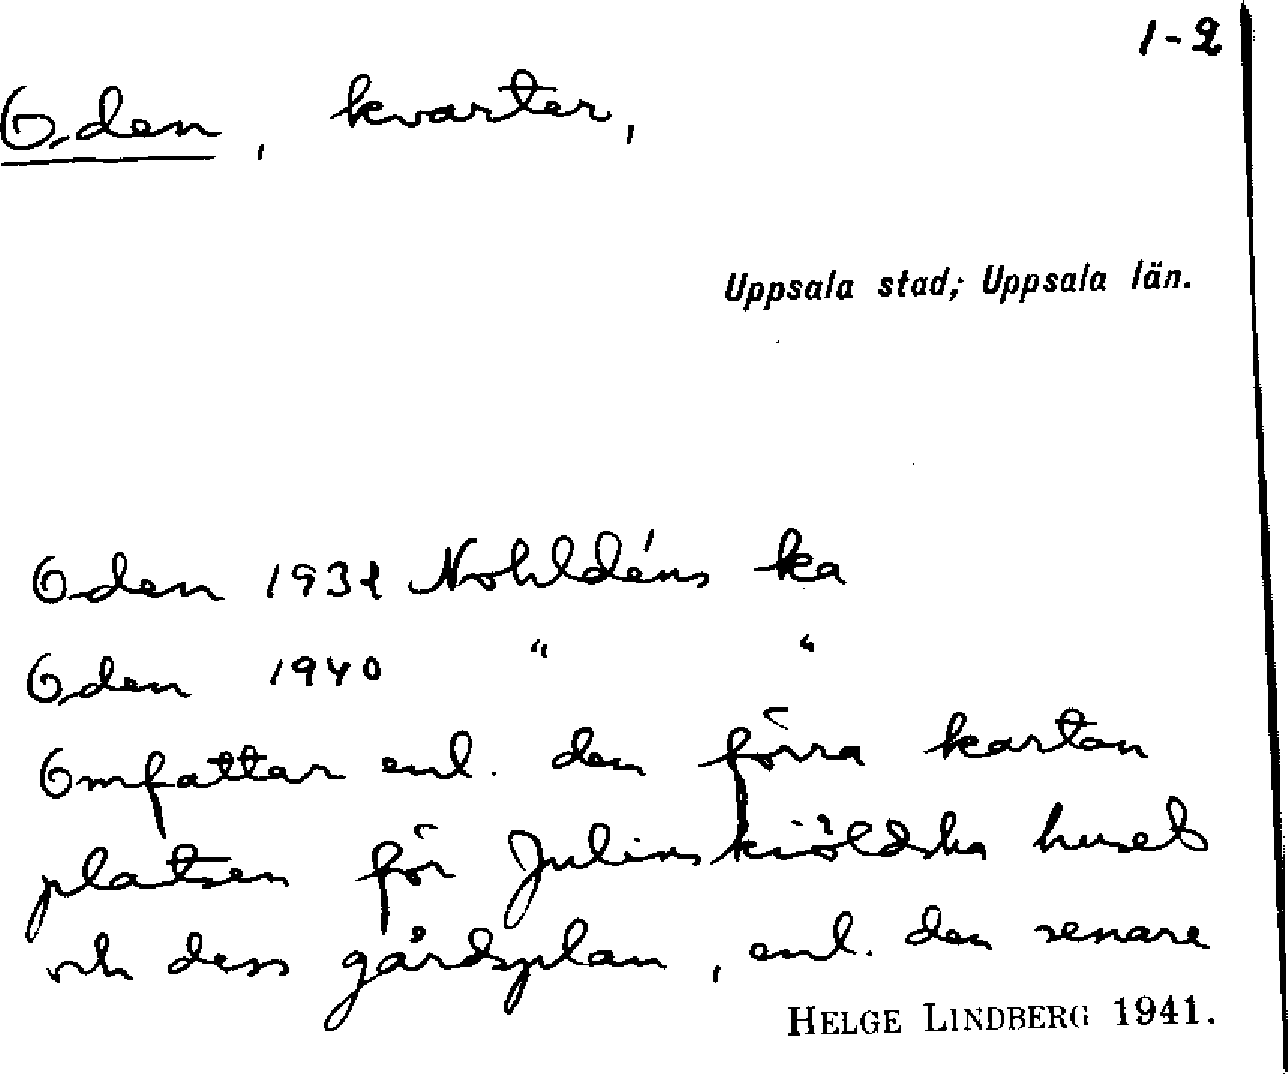 1-2
Oden, kvarter,
Uppsala stad; Uppsala län.
Oden 1931 Nohldéns ka
Oden 1940 " "
Omfattar enl. den förra kartan
platsen för Julinskiöldska huset
och dess gårdsplan, enl. den senare
HELGE LINDBERG 1941.